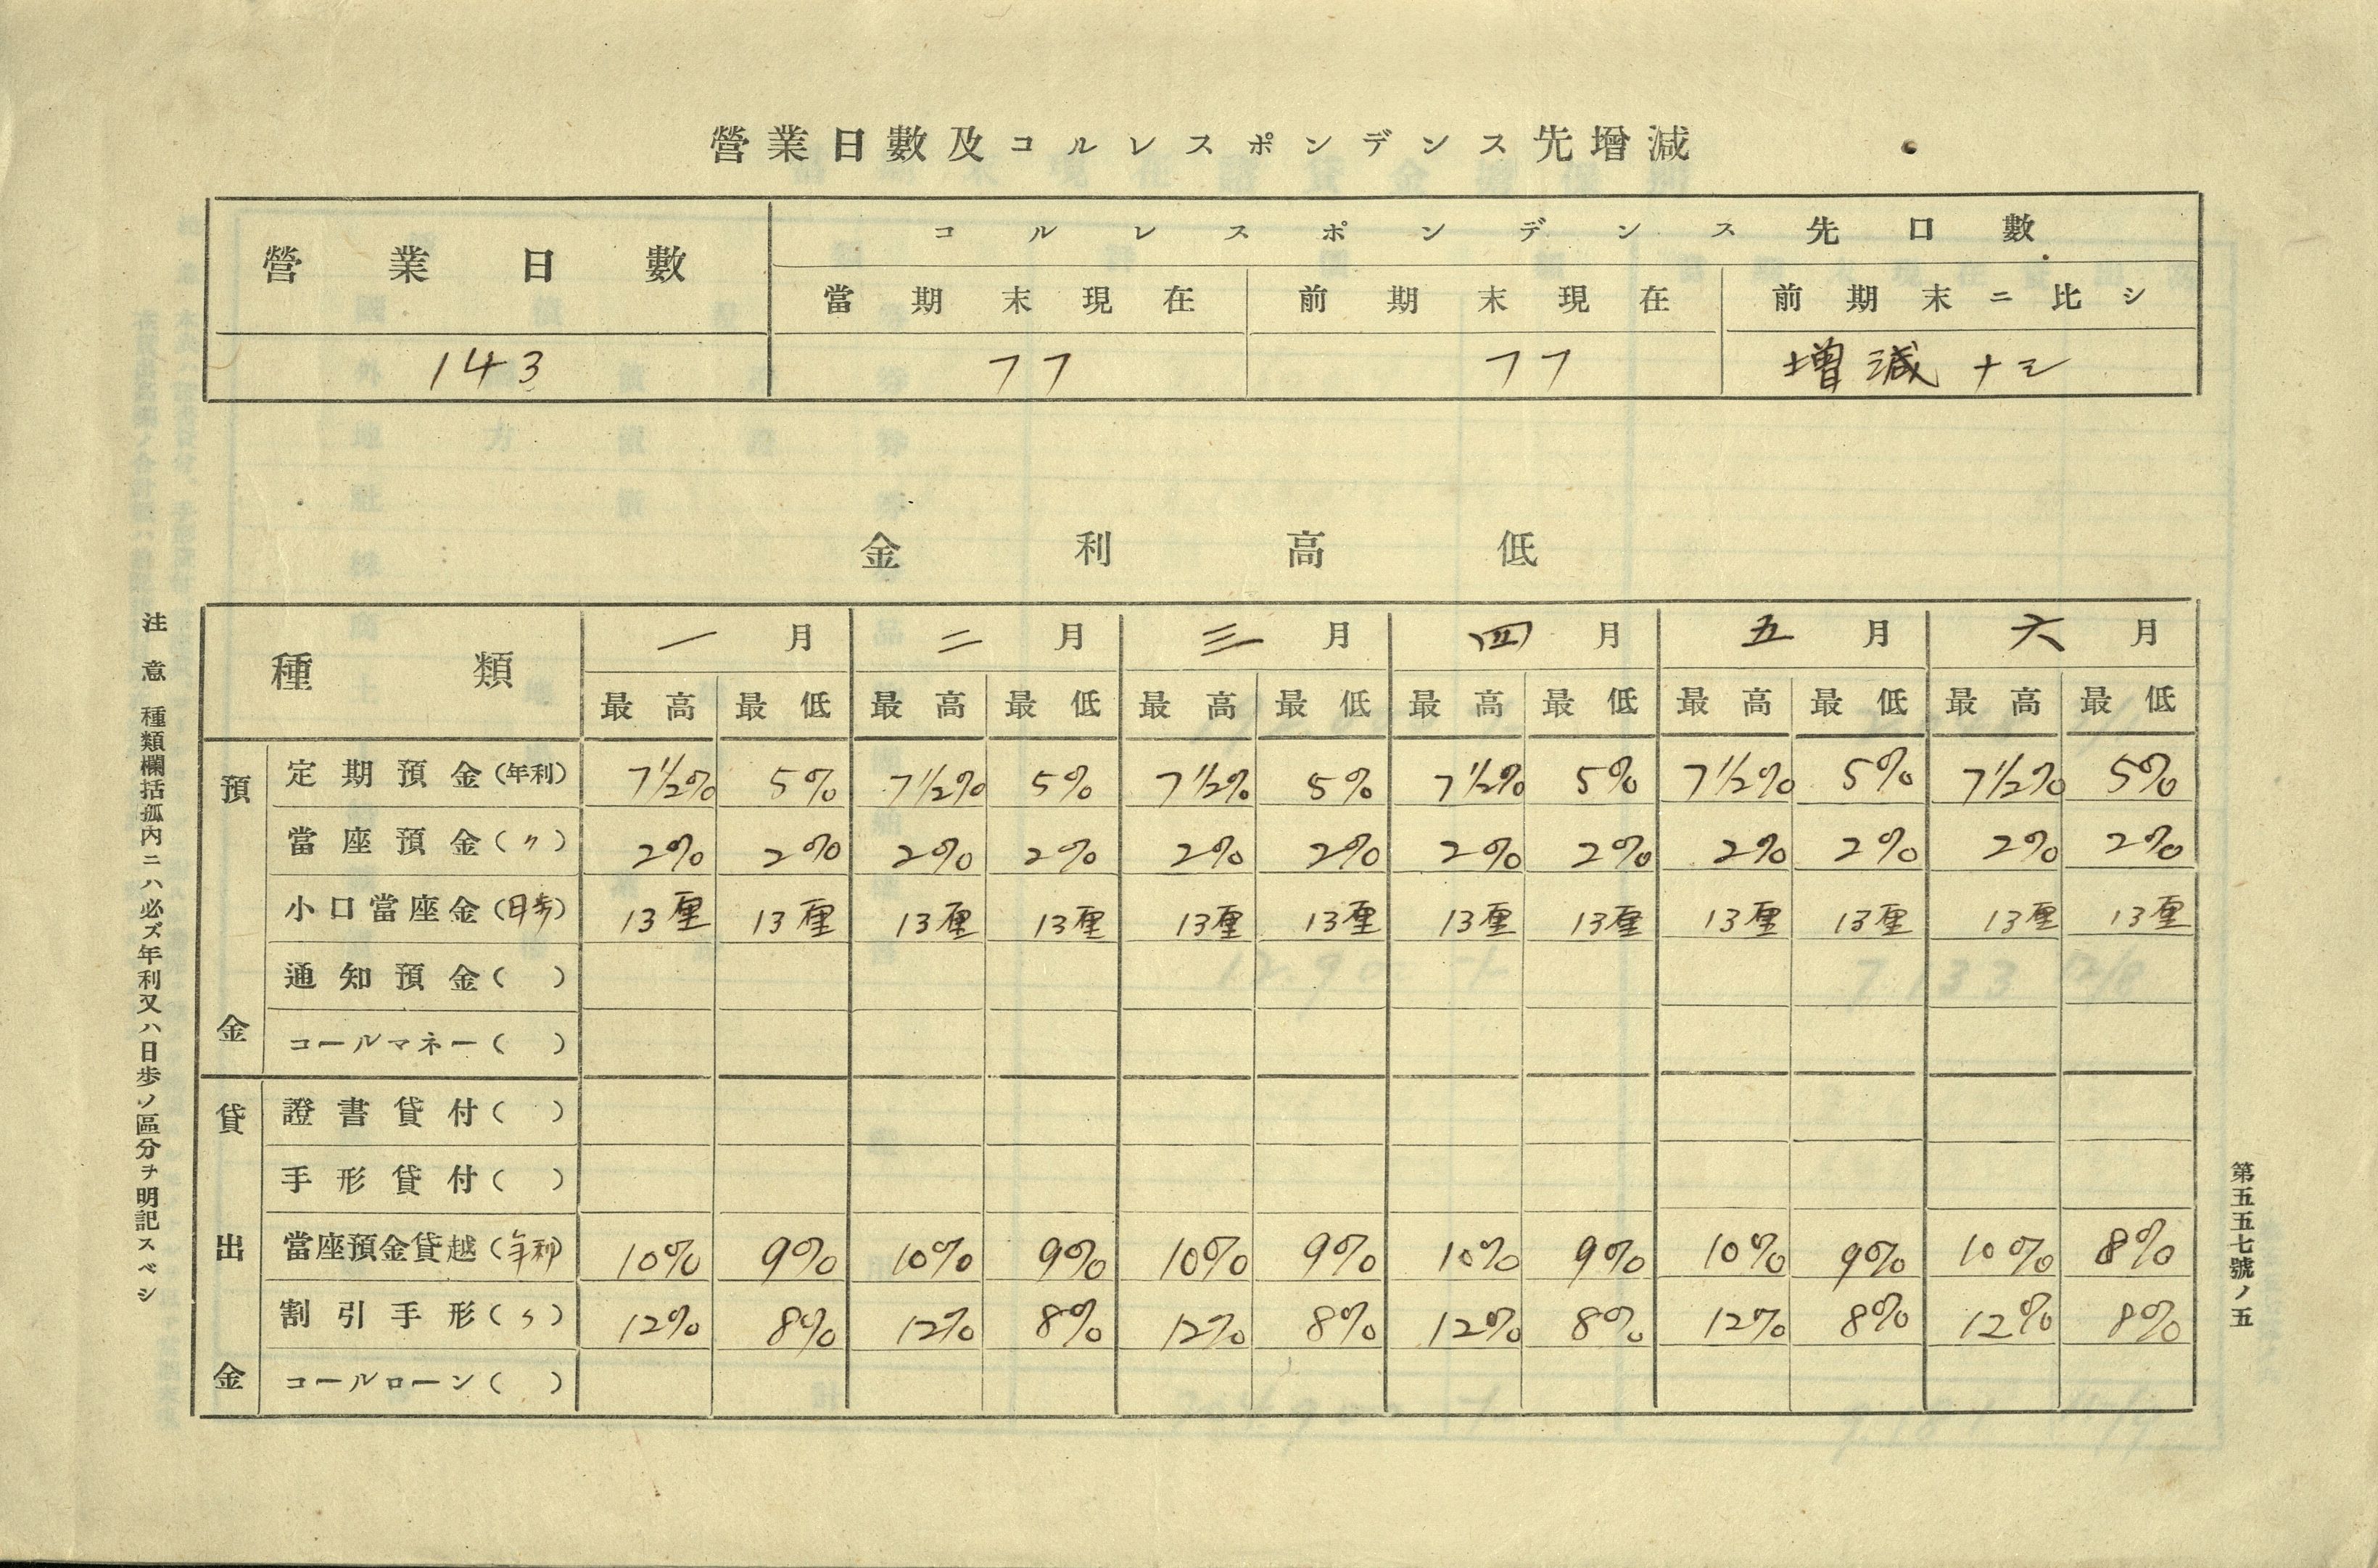 營業日數及コルレスポンデンス先增減
營業日數 コルレスポンデンス先口數
當期末現在 前期末現在 前期末ニ比シ
143 77 77 増減ナシ
金利高低
種類 一月 二月 三月 四月 五月 六月
最高 最低 最高 最低 最高 最低 最高 最低 最高 最低 最高 最低
預金
定期預金(年利) 7 1/2% 5% 7 1/2% 5% 7 1/2% 5% 7 1/2% 5% 7 1/2% 5% 7 1/2% 5%
當座預金(〃) 2% 2% 2% 2% 2% 2% 2% 2% 2% 2% 2% 2%
小口當座金(日歩) 13厘 13厘 13厘 13厘 13厘 13厘 13厘 13厘 13厘 13厘 13厘 13厘
通知預金( )
コールマネー( )
貸出金
證書貸付( )
手形貸付( )
當座預金貸越(年利) 10% 9% 10% 9% 10% 9% 10% 9% 10% 9% 10% 8%
割引手形(〃) 12% 8% 12% 8% 12% 8% 12% 8% 12% 8% 12% 8%
コールローン( )
注意 種類欄括孤內ニハ必ズ年利又ハ日歩ノ區分ヲ明記スベシ
第五五七號ノ五